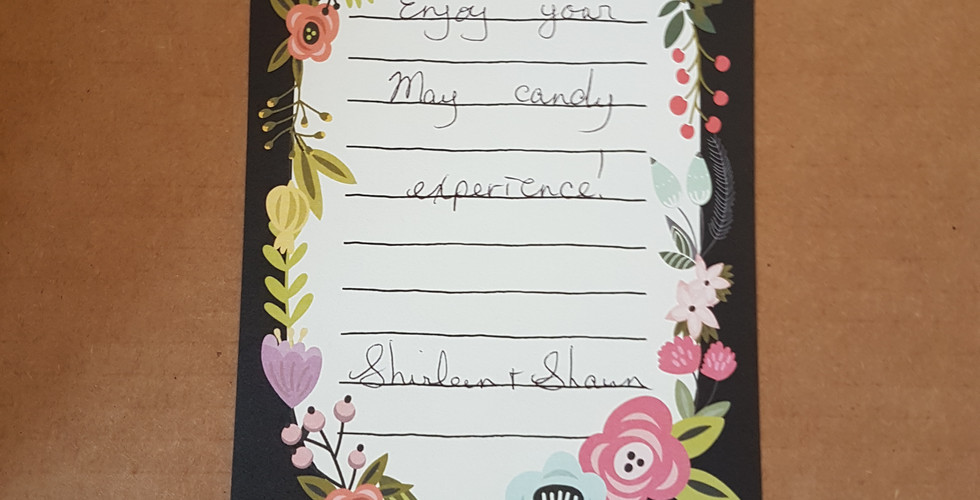 Enjoy your
May candy
experience!
Shirleen + Shaun